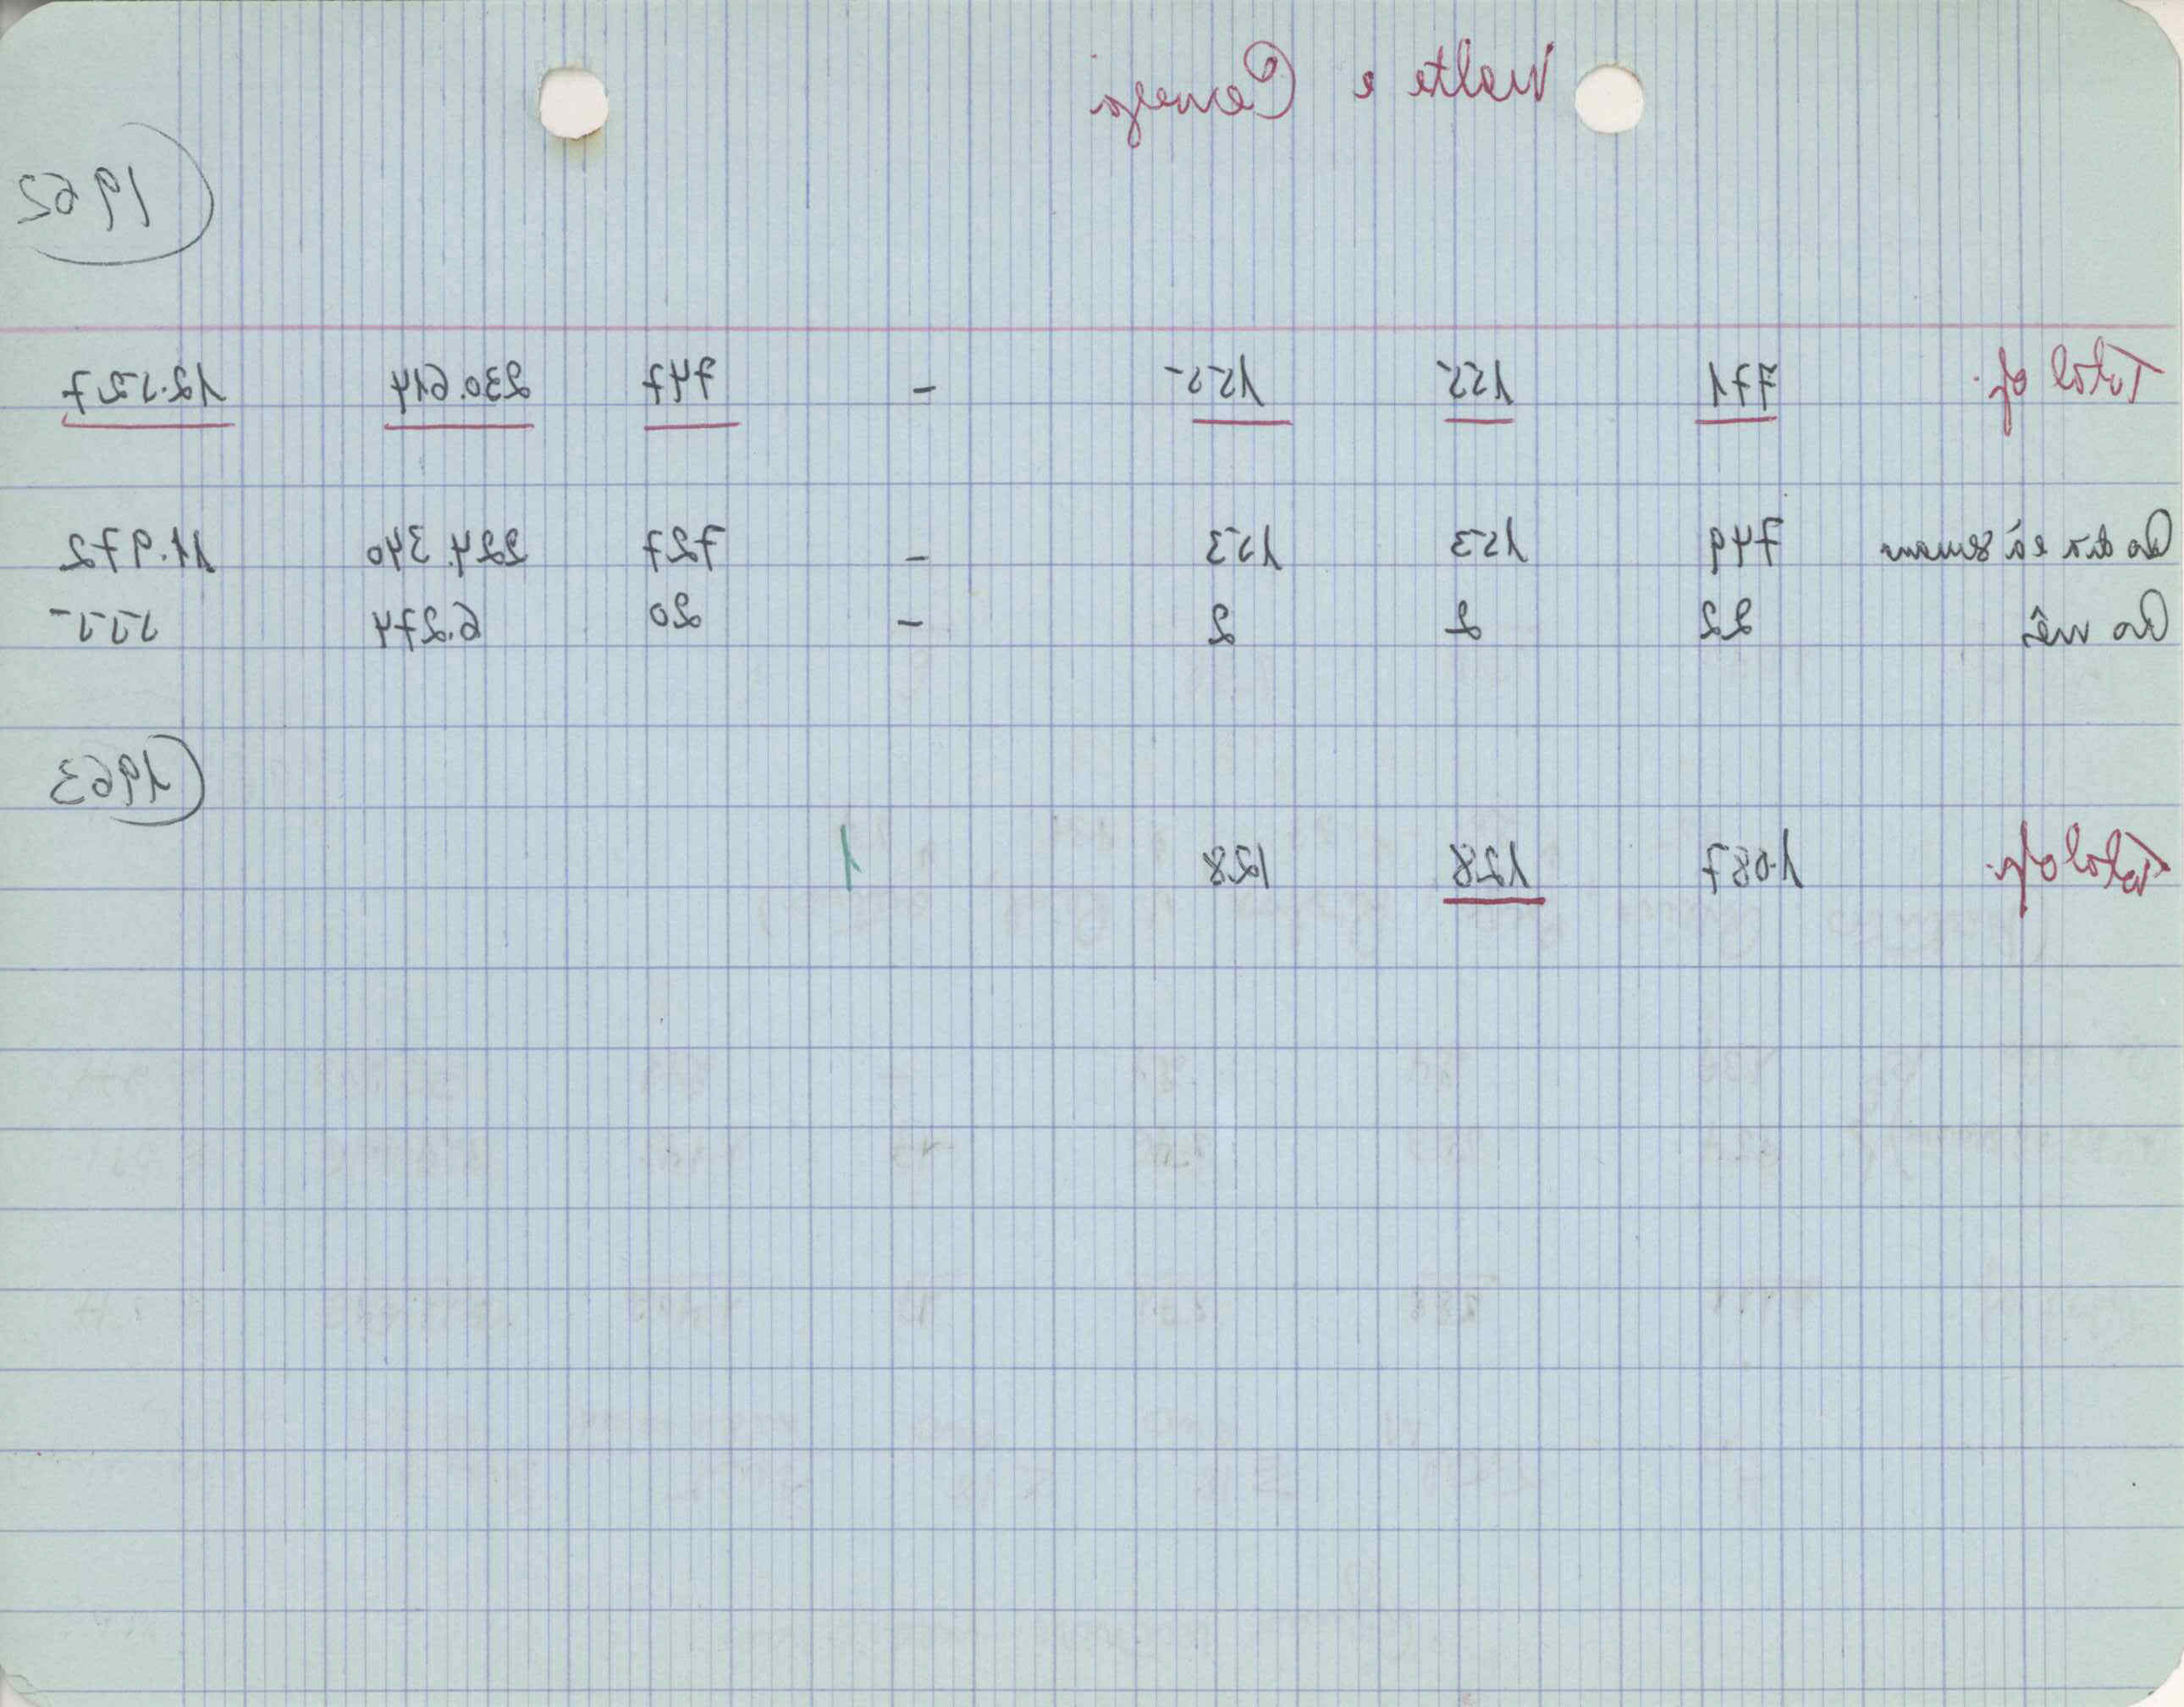 Malte e Cerveja
1962
Total op. 771 155 155 - 747 230.614 12.527
Ao dia e à semana 749 153 153 - 727 224.340 11.972
Ao mês 22 2 2 - 20 6.274 555
1963
Total op. 1.087 128 128 1